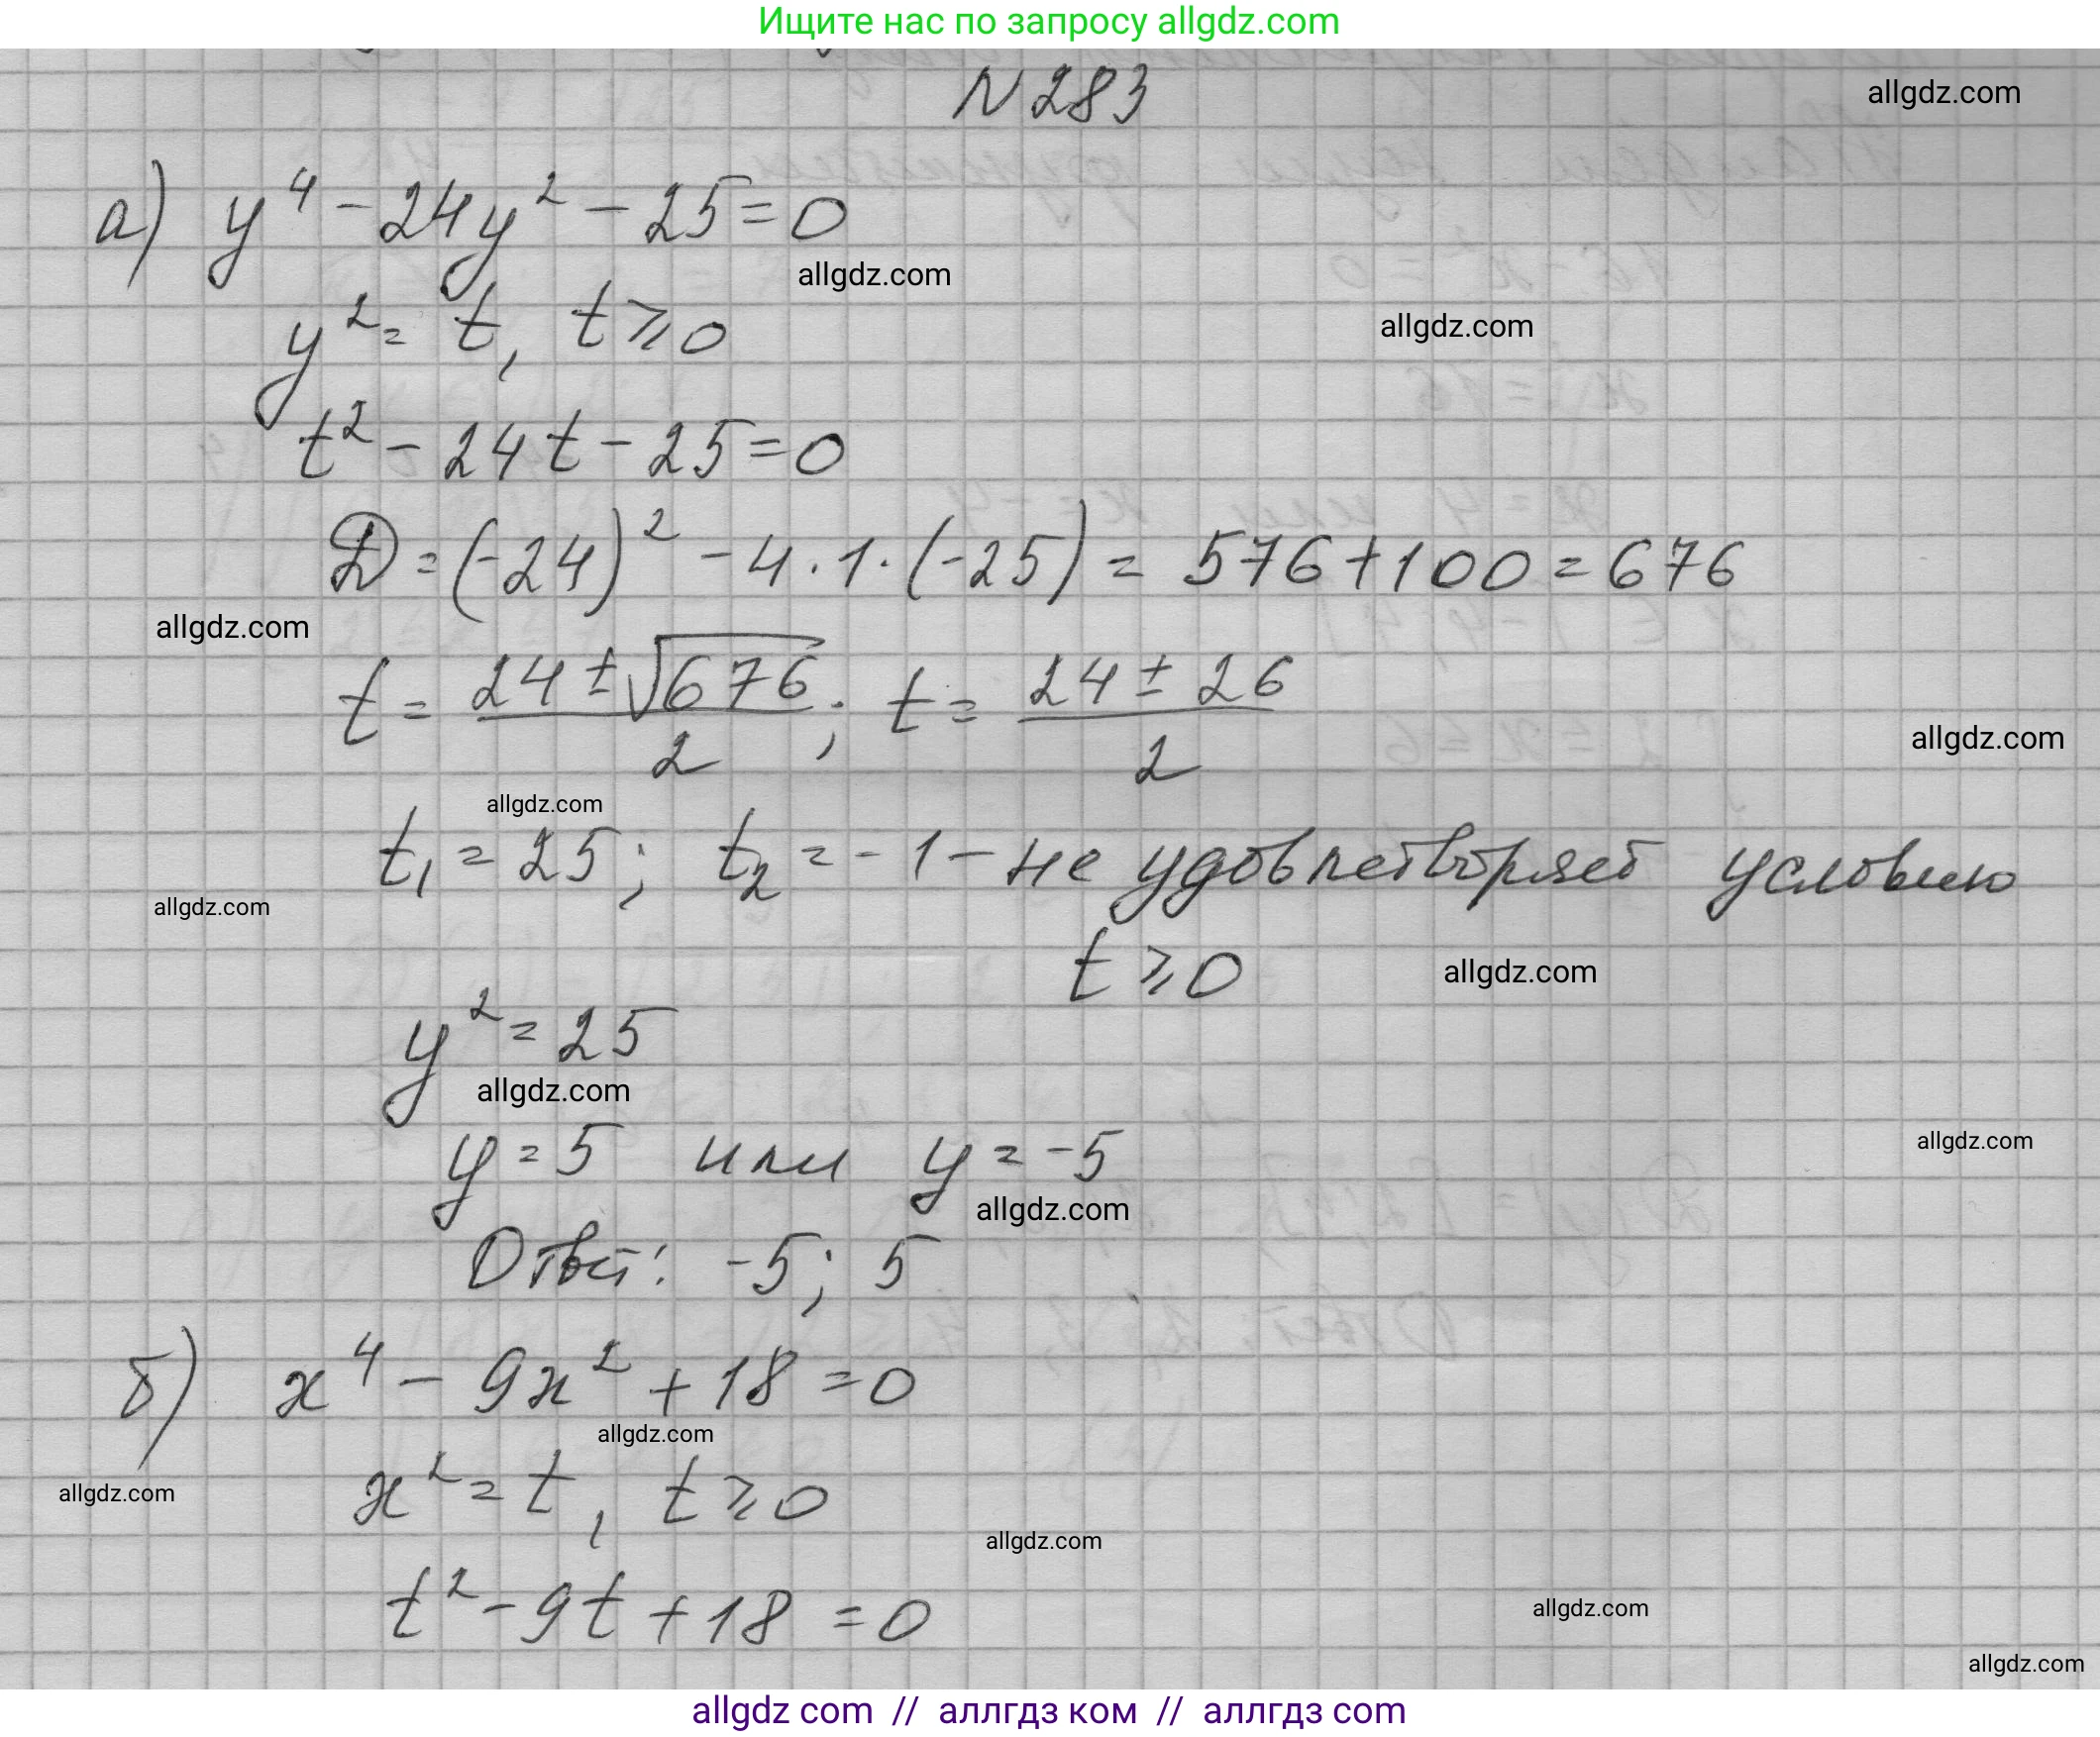 Ищите нас по запросу allgdz.com
N 283
allgdz.com
а) y⁴ - 24y² - 25 = 0
allgdz.com
y² = t, t ⩾ 0
allgdz.com
t² - 24t - 25 = 0
D = (-24)² - 4 · 1 · (-25) = 576 + 100 = 676
allgdz.com
t = (24 ± √676)/2 ; t = (24 ± 26)/2
allgdz.com
allgdz.com
t₁ = 25; t₂ = -1 - не удовлетворяет условию
allgdz.com
t ⩾ 0
allgdz.com
y² = 25
allgdz.com
y = 5 или y = -5
allgdz.com
allgdz.com
Ответ: -5; 5
б) x⁴ - 9x² + 18 = 0
allgdz.com
x² = t, t ⩾ 0
allgdz.com
allgdz.com
t² - 9t + 18 = 0
allgdz.com
allgdz.com
allgdz com // аллгдз ком // аллгдз com